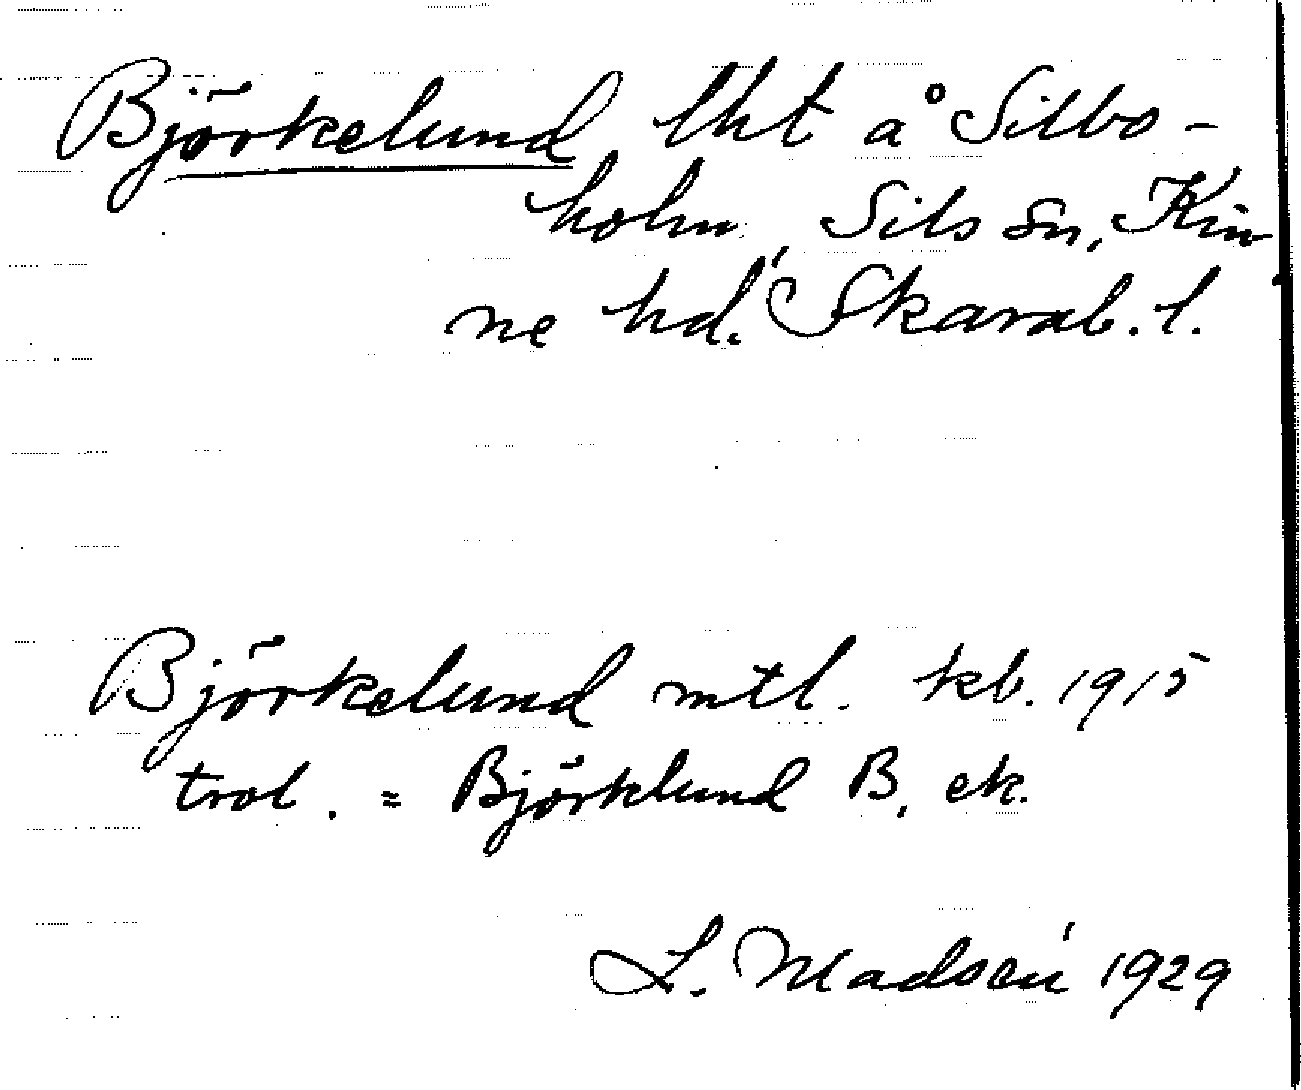 Björkelund, lht å Silbo-
holm, Sils sn, Kin
ne hd., Skarab. l.
Björkelund mtl. kb. 1915
trol. = Björklund B, ek.
L. Madsén 1929